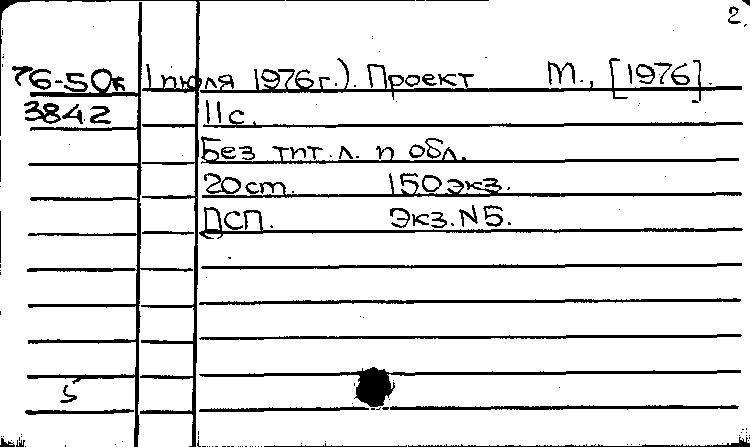 2.
76-50к 1 июля 1976г.). Проект М., [1976].
3842 11с.
Без тит. л. и обл.
20 см. 150 экз.
ДСП. Экз. N5.
5